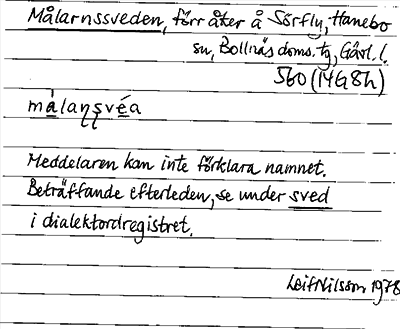 Målarnssveden, förr åter å Sörfly, Hanebo
sn, Bollnäs doms. tg, Gävl. l.
5GO (14G8h)
målaṇṣvéa
Meddelaren kan inte förklara namnet.
Beträffande efterleden, se under sved
i dialektordregistret.
Leif Nilsson 1978